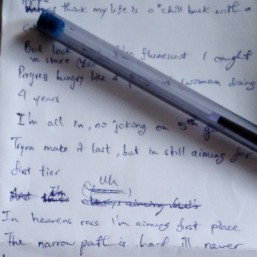 think my life is a "chill back with a
But look fluenent I caught
ya stare (Yea
Progress hungry like a woman doing
4 years
I'm all in, no joking on 5th g
Tryna make it last, but im still aiming for
first tier
Uh
In heavens race I'm aiming first place
The narrow path is hard ill never